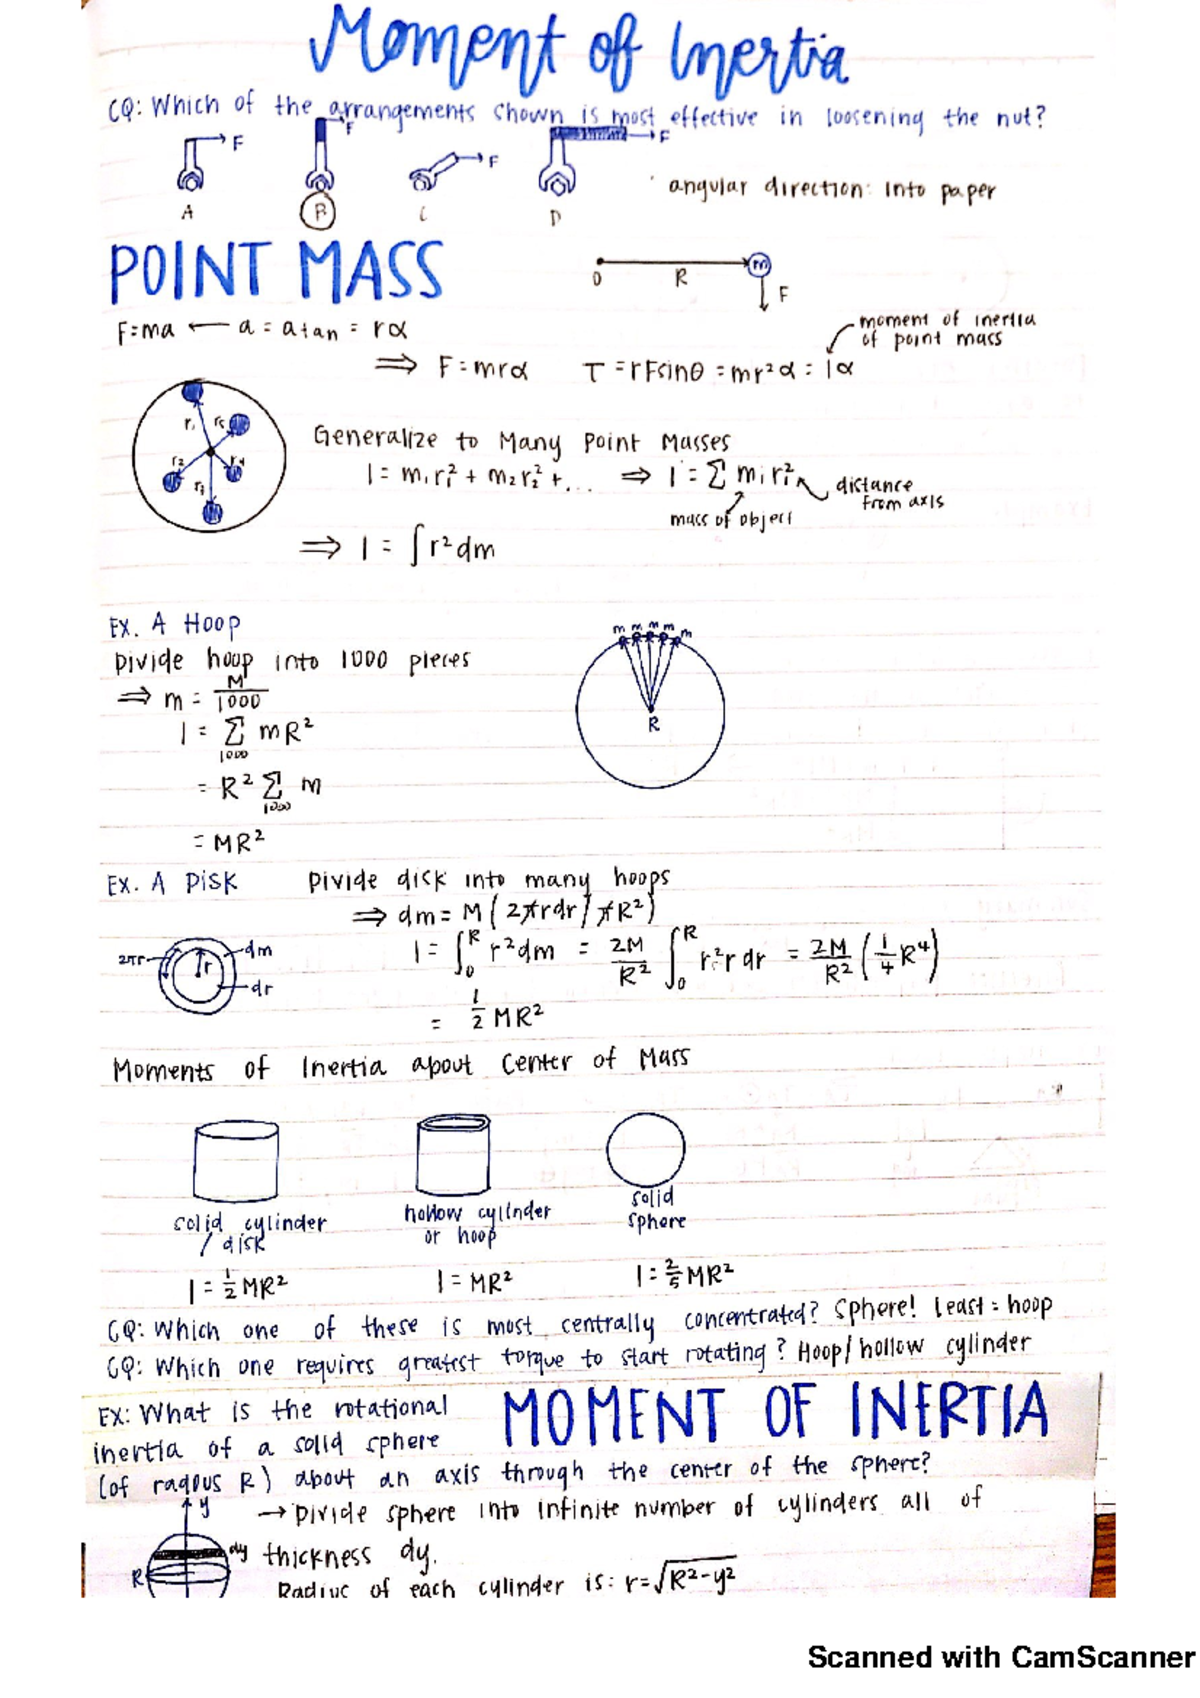 Moment of Inertia
CQ: Which of the arrangements shown is most effective in loosening the nut?
F F F F
A B C D
angular direction: into paper
POINT MASS
O R m F
F=ma ← a = atan = rα
moment of inertia
of point mass
⇒ F=mrα τ = rFsinθ = mr²α = Iα
r₁ r₅ r₂ r₄ r₃
Generalize to Many Point Masses
I = m₁r₁² + m₂r₂² + ... ⇒ I = Σ mᵢrᵢ²
distance
from axis
mass of object
⇒ I = ∫r²dm
EX. A Hoop
m m m m m
Divide hoop into 1000 pieces
⇒ m = M/1000
I = Σ1000 mR²
R
= R² Σ1000 m
= MR²
EX. A Disk Divide disk into many hoops
⇒ dm = M(2πrdr/πR²)
2πr dm r dr
I = ∫₀ᴿ r²dm = 2M/R² ∫₀ᴿ r²r dr = 2M/R² (1/4 R⁴)
= 1/2 MR²
Moments of Inertia about Center of Mass
solid cylinder
/ disk
hollow cylinder
or hoop
solid
sphere
I = 1/2 MR² I = MR² I = 2/5 MR²
CQ: Which one of these is most centrally concentrated? Sphere! Least = hoop
CQ: Which one requires greatest torque to start rotating? Hoop/hollow cylinder
MOMENT OF INERTIA
EX: What is the rotational
inertia of a solid sphere
(of radius R) about an axis through the center of the sphere?
y
→ Divide sphere into infinite number of cylinders all of
dy thickness dy.
R
Radius of each cylinder is: r=√R²-y²
Scanned with CamScanner